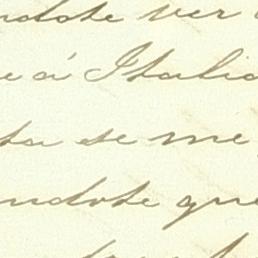 ndote ver
e á Italia
ta se me
ndote que